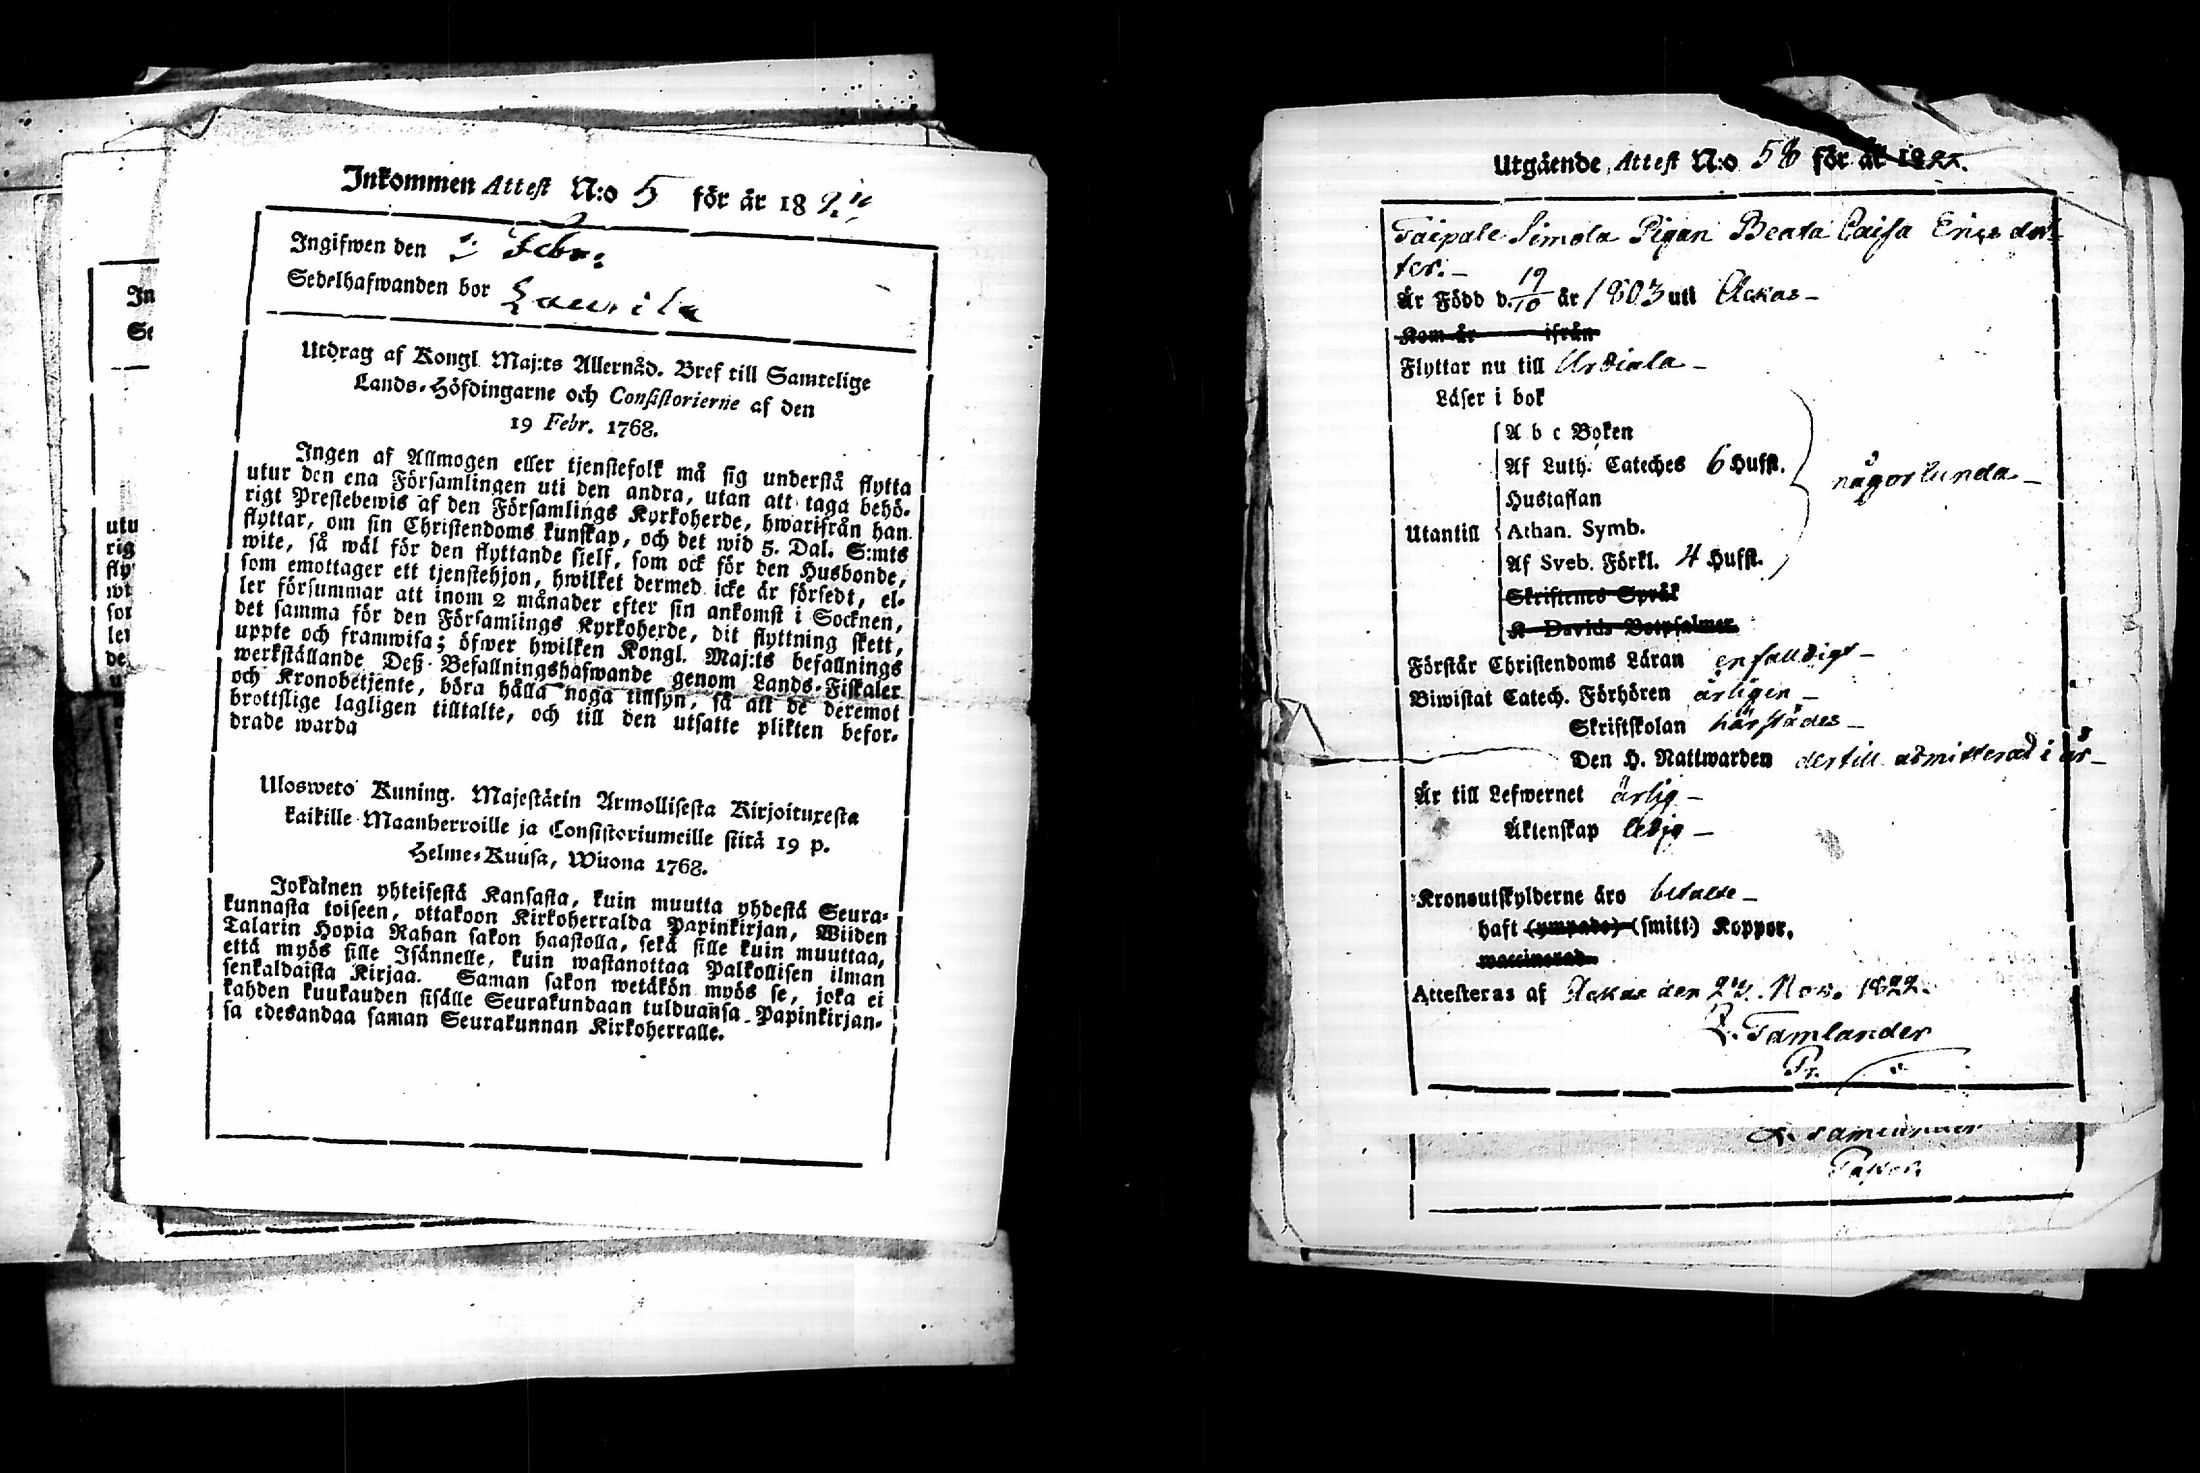 Inkommen Attest N:o 5 för år 182
Ingifwen den 2 Febr:
Sedelhafwanden bor Laurila
Utdrag af Kongl. Maj:ts Allernåd. Bref till Samtelige
Lands-Höfdingarne och Consistorierne af den
19 Febr. 1768.
Ingen af Allmogen eller tjenstefolk må sig understå flytta
utur den ena Församlingen uti den andra, utan att taga behö-
rigt Prestebewis af den Församlings Kyrkoherde, hwarifrån han
flyttar, om sin Christendoms kunskap, och det wid 5. Dal. S:mts
wite, så wäl för den flyttande sjelf, som ock för den Husbonde,
som emottager ett tjenstehjon, hwilket dermed icke är försedt, el-
ler försummar att inom 2 månader efter sin ankomst i Socknen,
det samma för den Församlings Kyrkoherde, dit flyttning skett,
uppte och framwisa; öfwer hwilken Kongl. Maj:ts befallnings
werkställande Deß Befallningshafwande genom Lands-Fiskaler
och Kronobetjente, böra hålla noga tillsyn, så att de deremot
brottslige lagligen tilltalte, och till den utsatte plikten befor-
drade warda
Ulosweto Kuning. Majestätin Armollisesta Kirjoituxesta
kaikille Maanherroille ja Consistoriumeille siitä 19 p.
Helme-Kuusa, Wuona 1768.
Jokainen yhteisestä Kansasta, kuin muutta yhdestä Seura-
kunnasta toiseen, ottakoon Kirkoherralda Papinkirjan, Wiiden
Talarin Hopia Rahan sakon haastolla, sekä sille kuin muuttaa,
että myös sille Isännelle, kuin wastanottaa Palkollisen ilman
senkaldaista Kirjaa. Saman sakon wetäkön myös se, joka ei
kahden kuukauden sisälle Seurakundaan tulduansa Papinkirjan-
sa edesandaa saman Seurakunnan Kirkoherralle.
In
Se
utu
rig
fly
wi
sor
ler
de
u
Utgående Attest N:o 58 för år 1822.
Taipale Simola Pigan Beata Caisa Ericsdot-
ter.-
Är Född d. 19/10 år 1803 uti Ackas-
Kom år ifrån
Flyttar nu till Urdiala-
Läser i bok
A b c Boken
Af Luth. Cateches 6 Hufst.
någorlunda-
Hustaflan
Utantill Athan. Symb.
Af Sveb. Förkl. 4 Hufst.
Skriftenes Språk
K Davids Botpsalmer.
Förstår Christendoms Läran enfaldigt-
Biwistat Catech. Förhören årligen-
Skriftskolan härstädes-
Den H. Nattwarden dertill admitterad i år-
Är till Lefwernet ärlig-
Äktenskap ledig-
Kronoutskylderne äro betalte-
haft (ympade) (smitt.) Koppor,
waccinerad.
Attesteras af Ackas den 24. Nov. 1822.
Tamlander
Pr.
Tamlander
Pastor.